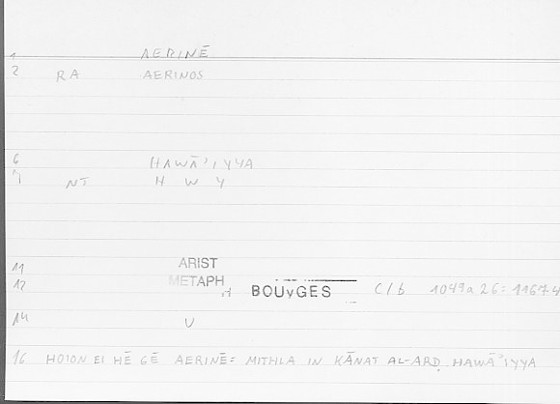 1 AERINĒ
2 RA AERINOS
6 HAWĀ'IYYA
7 NT H W Y
11 ARIST
12 METAPH BOUyGES C/b 1049a26=1167.4
14 U
16 HOION EI HĒ GĒ AERINĒ= MITHLA IN KĀNAT AL-ARḌ HAWĀ'IYYA